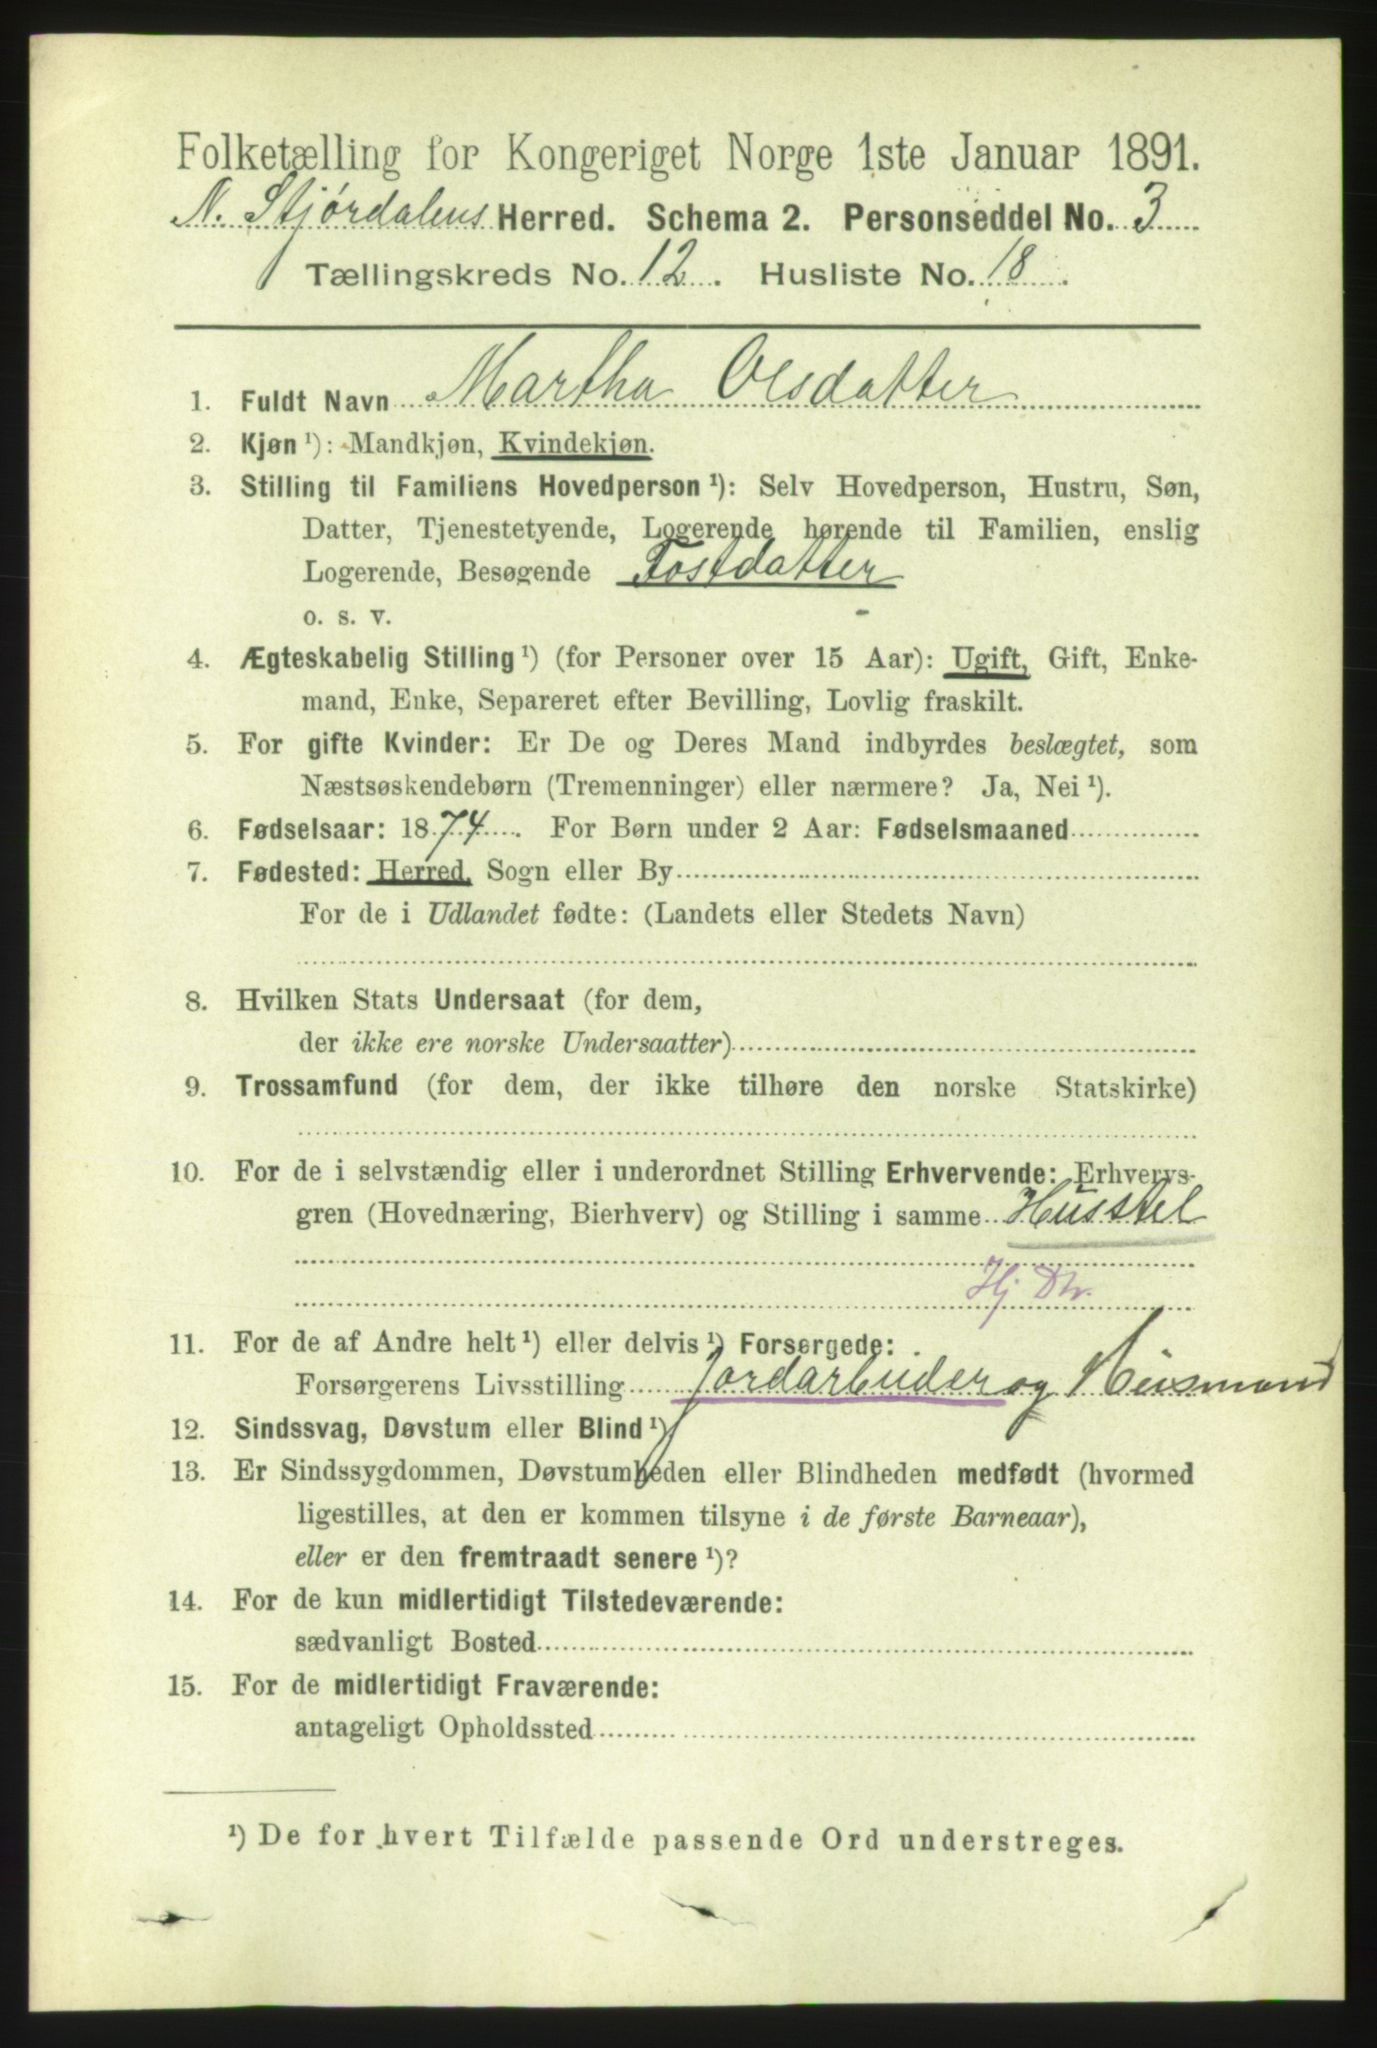 Folketælling for Kongeriget Norge 1ste Januar 1891.
N. Stjørdalens Herred. Schema 2. Personseddel No. 3
Tællingskreds No. 12. Husliste No. 18.
1. Fuldt Navn Martha Olsdatter
2. Kjøn ¹): Mandkjøn, Kvindekjøn.
3. Stilling til Familiens Hovedperson ¹): Selv Hovedperson, Hustru, Søn,
Datter, Tjenestetyende, Logerende hørende til Familien, enslig
Logerende, Besøgende Fostdatter
o. s. v.
4. Ægteskabelig Stilling ¹) (for Personer over 15 Aar): Ugift, Gift, Enke-
mand, Enke, Separeret efter Bevilling, Lovlig fraskilt.
5. For gifte Kvinder: Er De og Deres Mand indbyrdes beslægtet, som
Næstsøskendebørn (Tremenninger) eller nærmere? Ja, Nei ¹).
6. Fødselsaar: 1874. For Børn under 2 Aar: Fødselsmaaned
7. Fødested: Herred, Sogn eller By
For de i Udlandet fødte: (Landets eller Stedets Navn)
8. Hvilken Stats Undersaat (for dem,
der ikke ere norske Undersaatter)
9. Trossamfund (for dem, der ikke tilhøre den norske Statskirke)
10. For de i selvstændig eller i underordnet Stilling Erhvervende: Erhvervs-
gren (Hovednæring, Bierhverv) og Stilling i samme Husstel
Hj Dtr.
11. For de af Andre helt ¹) eller delvis ¹) Forsørgede:
Forsørgerens Livsstilling Jordarbeider og Husmand
12. Sindssvag, Døvstum eller Blind ¹)
13. Er Sindssygdommen, Døvstumheden eller Blindheden medfødt (hvormed
ligestilles, at den er kommen tilsyne i de første Barneaar),
eller er den fremtraadt senere ¹)?
14. For de kun midlertidigt Tilstedeværende:
sædvanligt Bosted
15. For de midlertidigt Fraværende:
antageligt Opholdssted
¹) De for hvert Tilfælde passende Ord understreges.